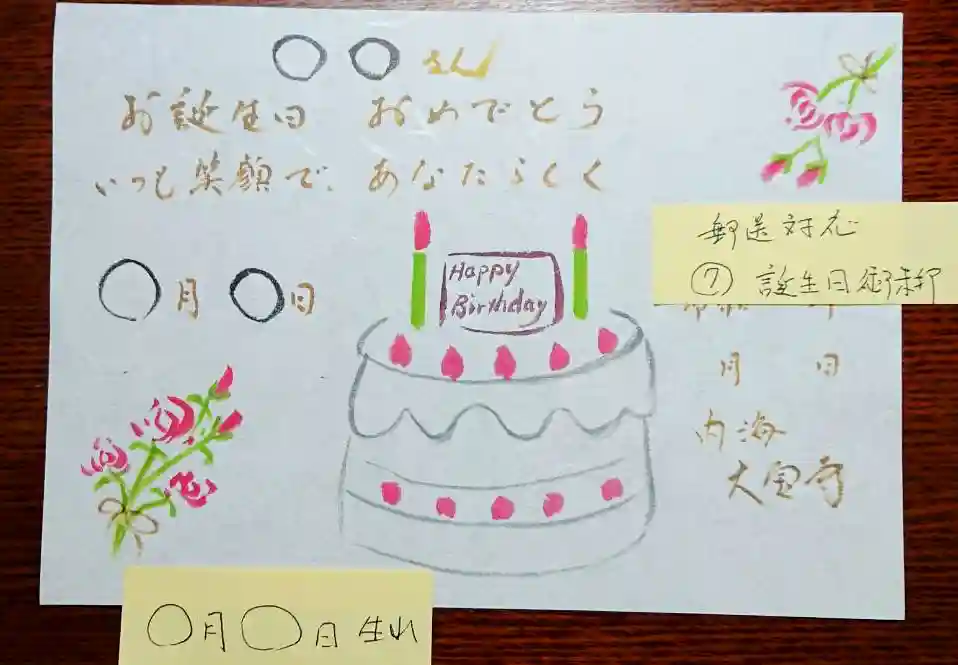 〇〇さん
お誕生日 おめでとう
いつも笑顔で、あなたらしく
〇月 〇日
Happy
Birthday
郵送対応
⑦ 誕生日御朱印
月 日
内海
大宝寺
〇月〇日生れ